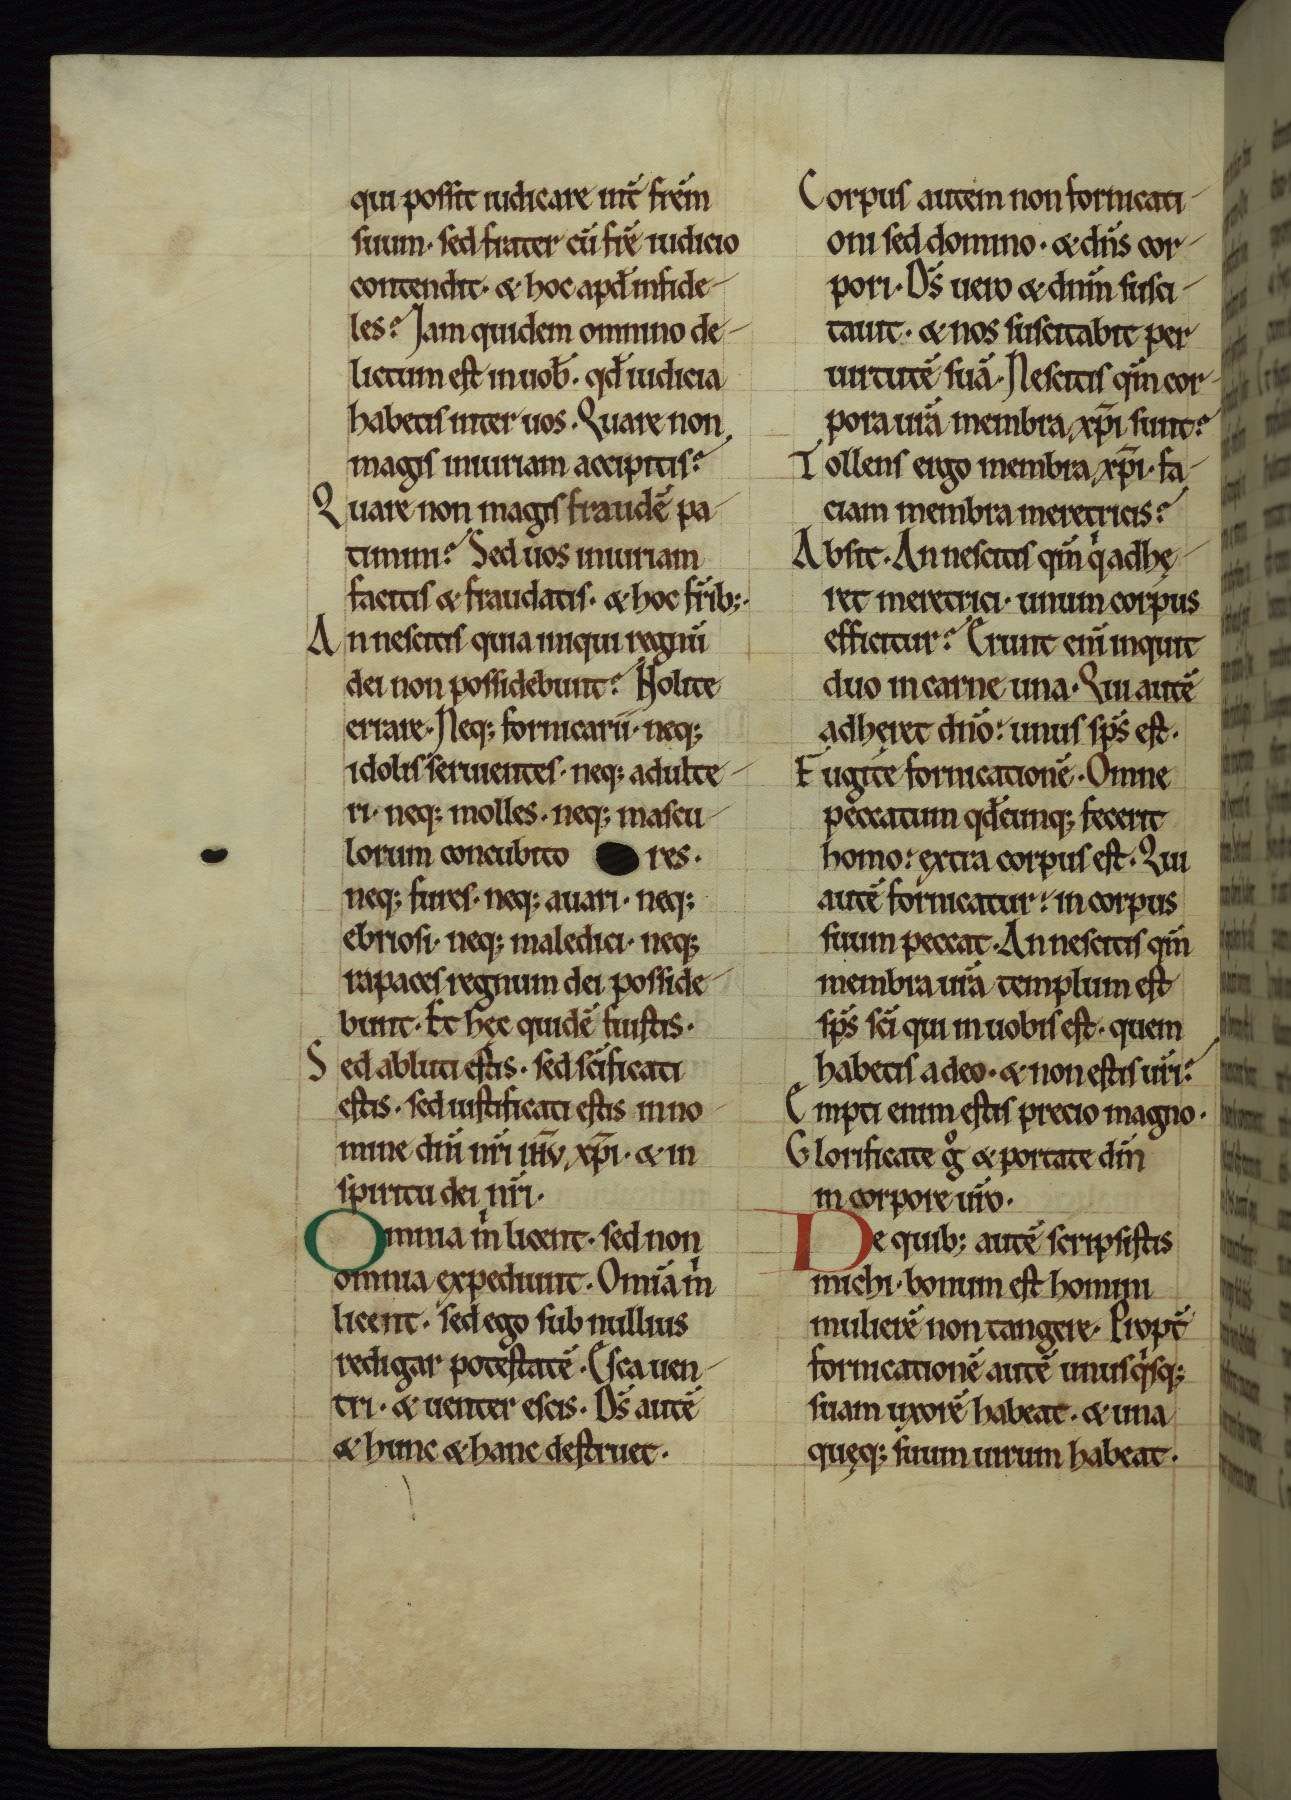 qui possit iudicare int̄ frēm
suum· sed frater cū frē iudicio
contendit· & hoc apđ infide-
les? Iam quidem omnino de-
lictum est in uob̄· qđ iudicia
habetis inter uos· Quare non
magis iniuriam accipitis?
Quare non magis fraudē pa-
timini? Sed uos iniuriam
facitis & fraudatis· & hoc frīb;·
An nescitis quia iniqui regnū
dei non possidebunt? Nolite
errare· Neq; fornicarii· neq;
idolis seruientes· neq; adulte-
ri· neq; molles· neq; mascu-
lorum concubito res·
neq; fures· neq; auari· neq;
ebriosi· neq; maledici· neq;
rapaces regnum dei posside-
bunt· Et hęc quidē fuistis·
Sed abluti estis· sed scīficati
estis· sed iustificati estis in no-
mine dnī nrī ihū xp̄i· & in
spiritu dei nrī·
Omnia m̍ licent· sed non
omnia expediunt· Omīa m̍
licent· sed ego sub nullius
redigar potestatē· Esca uen-
tri· & uenter escis· Ds̄ autē
& hunc & hanc destruet·
Corpus autem non fornicati-
oni sed domino· & dn̄s cor-
pori· Ds̄ uero & dnīm susci-
tauit· & nos suscitabit per
uirtutē suā· Nescitis qm̄ cor-
pora urā membra xp̄i sunt?
Tollens ergo membra xp̄i· fa-
ciam membra meretricis?
Absit· An nescitis qm̄ q̍ adhę-
ret meretrici· unum corpus
efficitur? Erunt enī inquit
duo in carne una· Qui autē
adhęret dnō: unus sp̄s est·
Fugite fornicationē· Omne
peccatum qđcunq; fecerit
homo: extra corpus est· Qui
autē fornicatur: in corpus
suum peccat· An nescitis qm̄
membra urā templum est
sp̄s scī qui in uobis est· quem
habetis a deo· & non estis urī?
Empti enim estis precio magno·
Glorificate gͦ & portate dn̄m
in corpore urō·
De quib; autē scripsistis
michi· bonum est homini
mulierē non tangere· Propt̄
fornicationē autē unusq̍sq;
suam uxorē habeat· & una
quęq; suum uirum habeat·